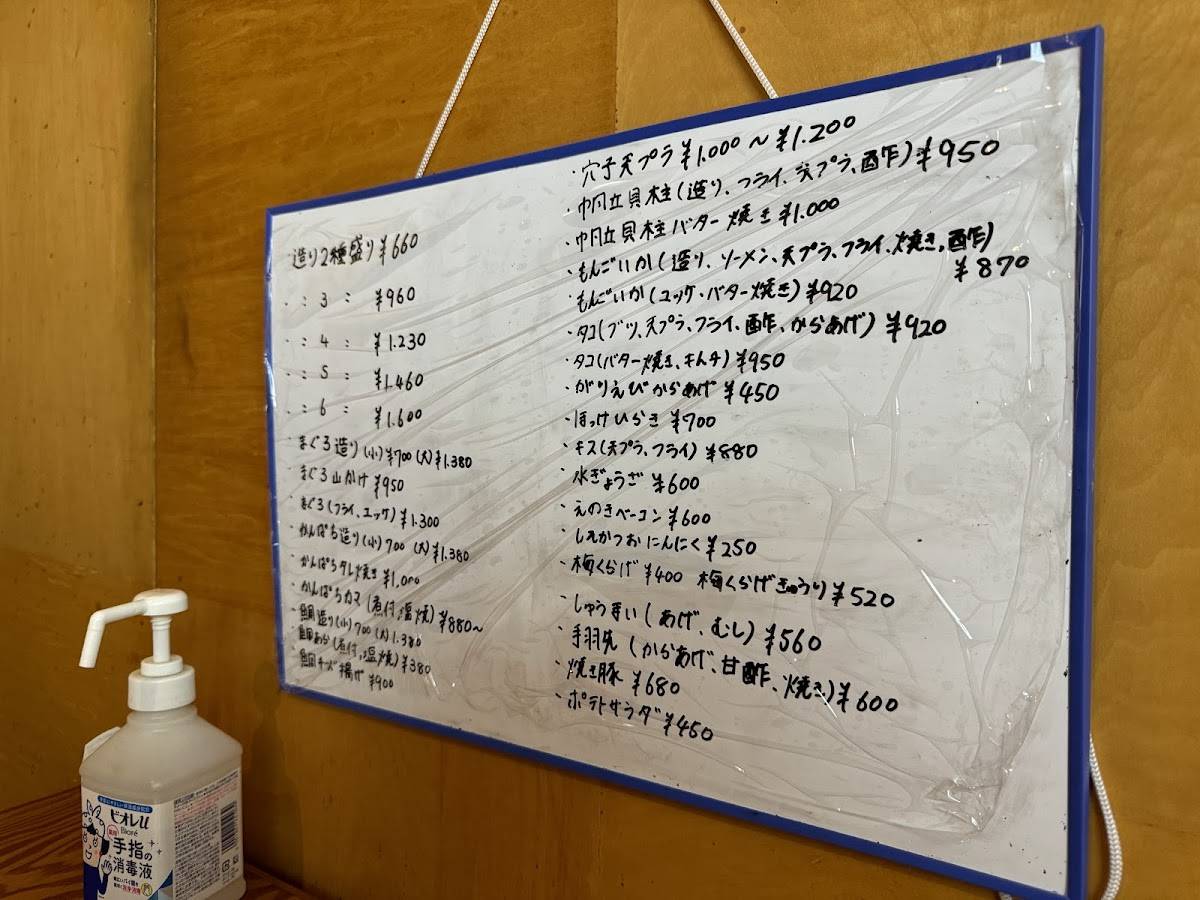 造り2種盛り ¥660
・ : 3 : ¥960
・ : 4 : ¥1.230
・ : 5 : ¥1.460
・ : 6 : ¥1.600
・まぐろ造り(小)¥700 (大)¥1.380
・まぐろ山かけ ¥950
・まぐろ(フライ、ユッケ)¥1.300
・かんぱち造り(小)700 (大)¥1.380
・かんぱちタレ焼き ¥1,000
・かんぱちカマ(煮付、塩焼)¥880〜
・鯛造り(小)700 (大)1.380
・鯛あら(煮付、塩焼)¥380
・鯛チーズ揚げ ¥900
・穴子天プラ ¥1.000〜¥1.200
・帆立貝柱(造り、フライ、天プラ、酢)¥950
・帆立貝柱バター焼き ¥1.000
・もんごいか(造り、ソーメン、天プラ、フライ、焼き、酢)
¥870
・もんごいか(ユッケ・バター焼き)¥920
・タコ(ブツ、天プラ、フライ、酢、からあげ)¥920
・タコ(バター焼き、キムチ)¥950
・がりえびからあげ ¥450
・ほっけひらき ¥700
・キス(天プラ、フライ)¥880
・水ぎょうざ ¥600
・えのきベーコン ¥600
・しおかつおにんにく ¥250
・梅くらげ ¥400 梅くらげきゅうり ¥520
・しゅうまい(あげ、むし)¥560
・手羽先(からあげ、甘酢、焼き)¥600
・焼き豚 ¥680
・ポテトサラダ ¥450
ビオレu
Bioré
手指の
消毒液